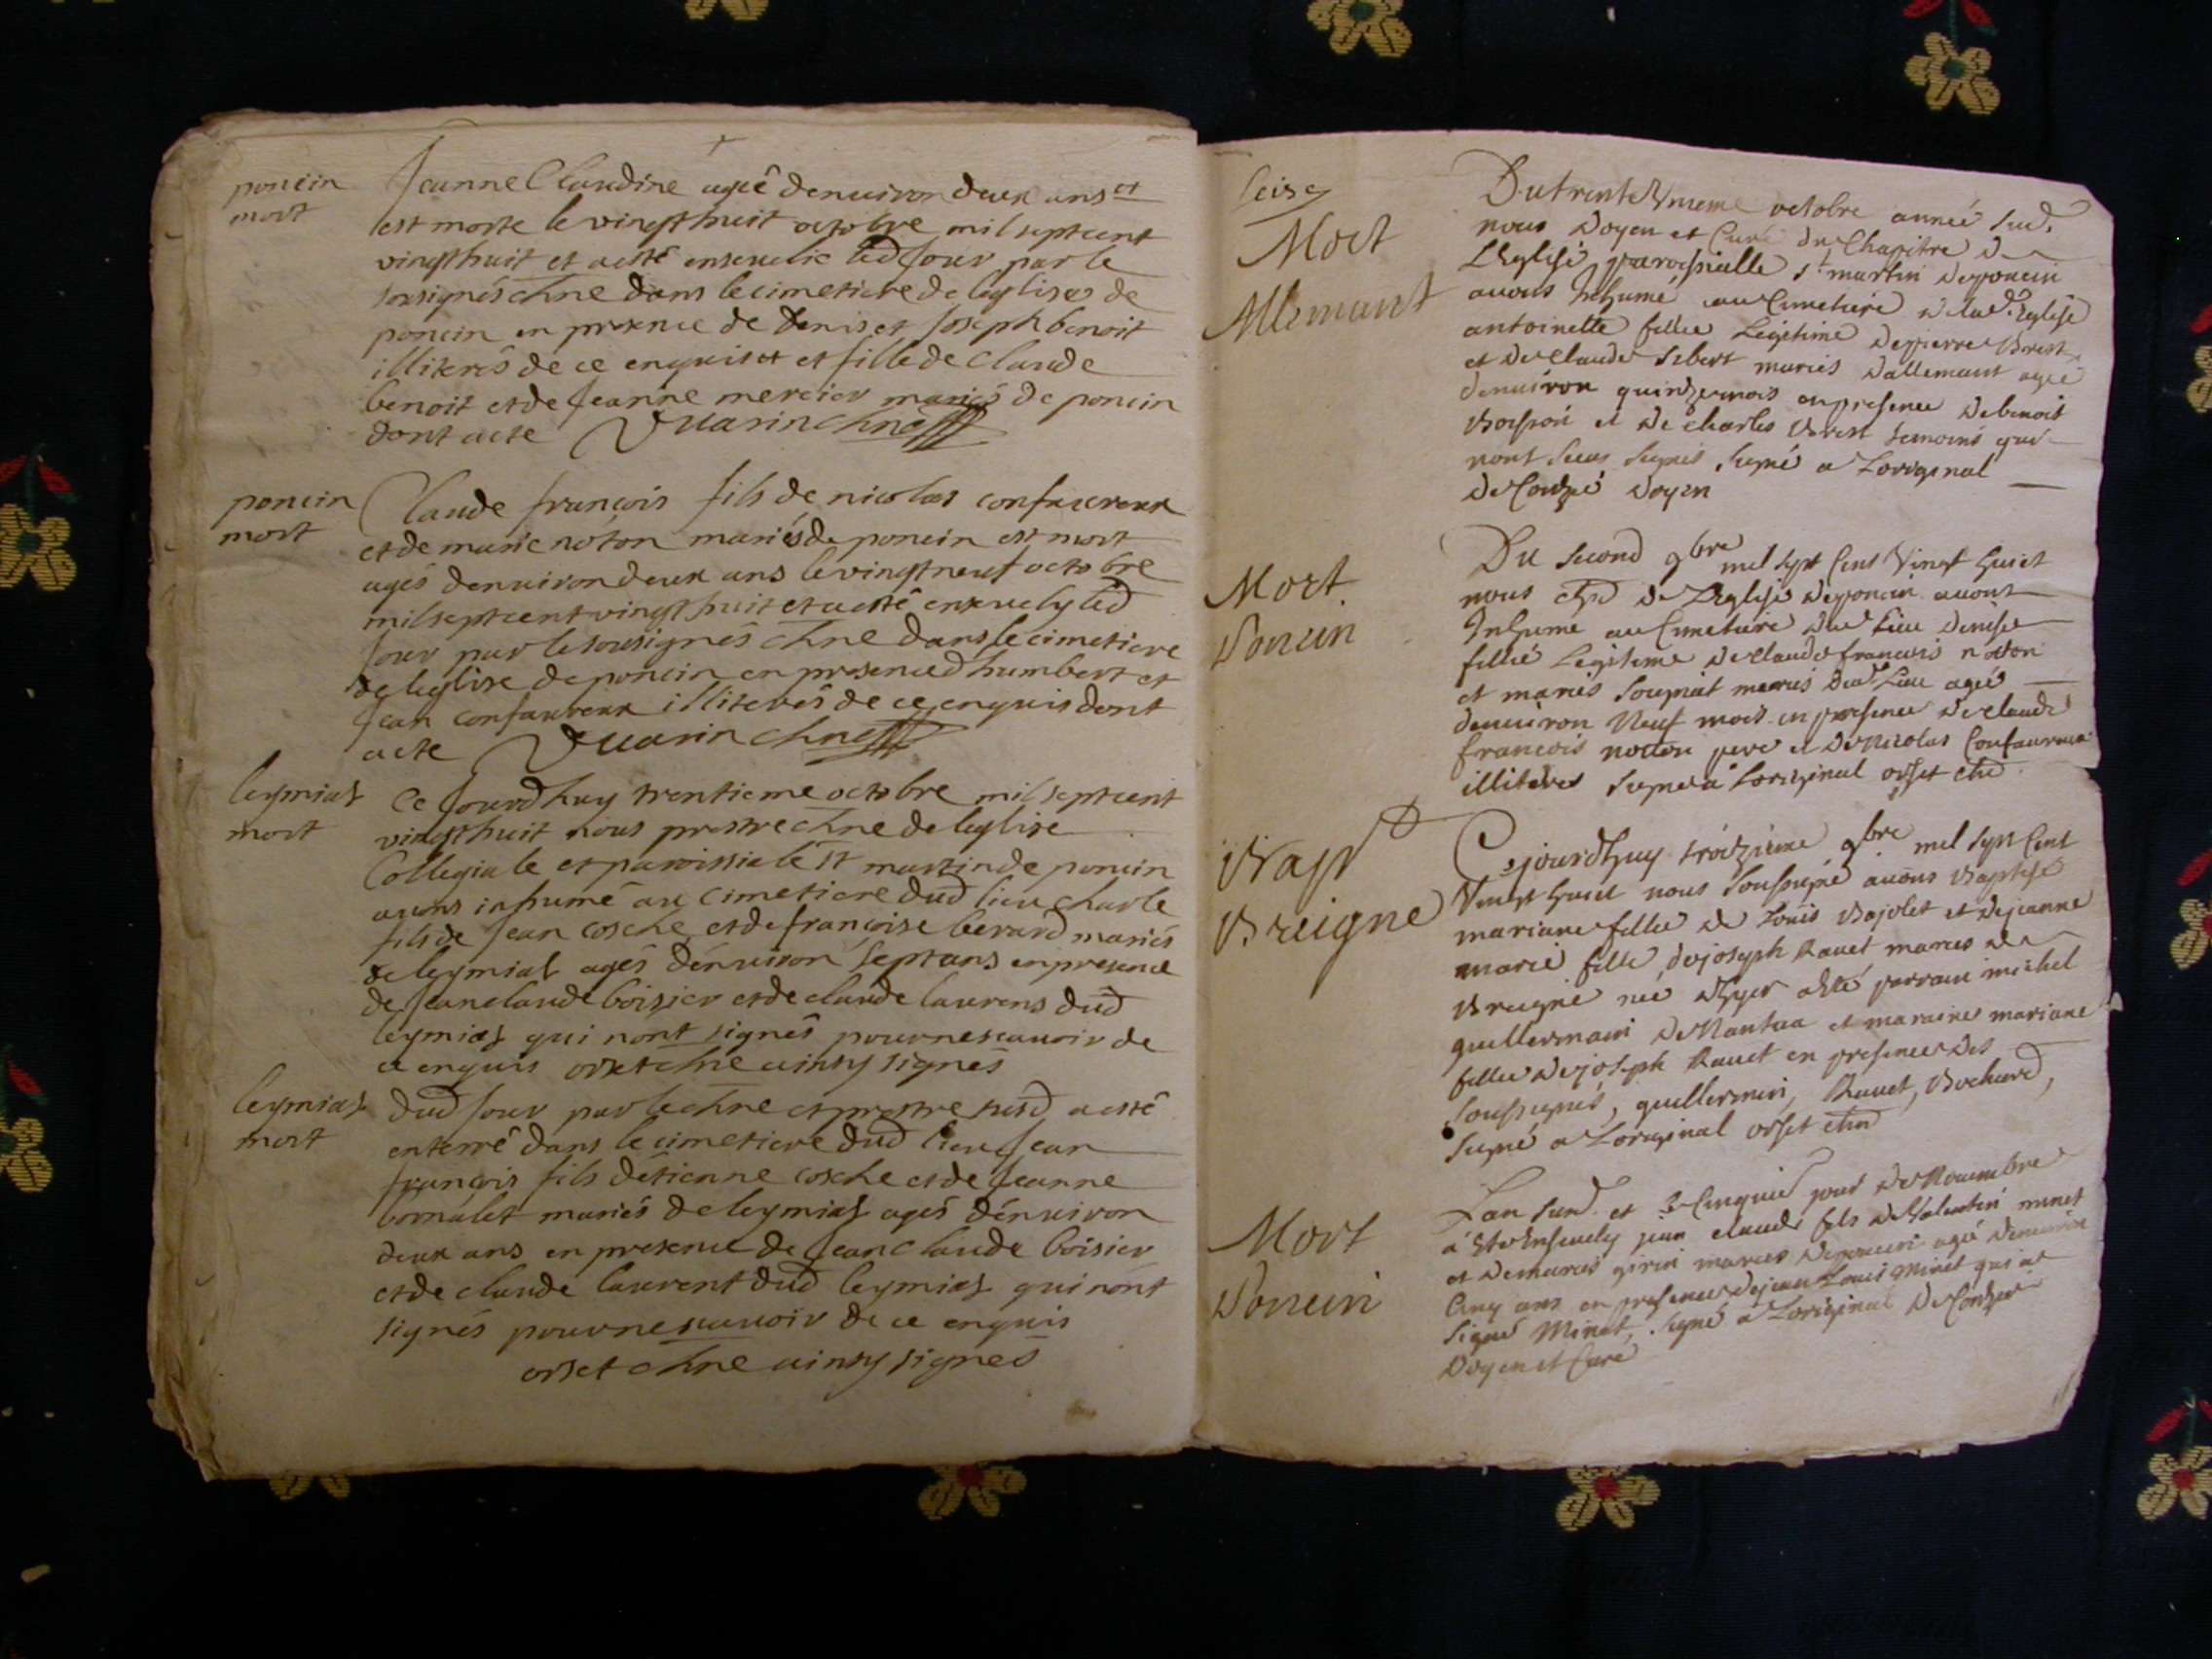 poncin
mort
Jeanne Claudine agée denuiron deux ans et
est morte le vingthuit octobre mil septcent
vingthuit et a esté enseuelie led Jour par le
sousignés chne dans le cimetiere de leglise de
poncin en presence de Denis et Joseph benoit
illiterés de ce enquis et fille de Claude
benoit et de Jeanne mercier mariés de poncin
dont acte Vuarin chne
poncin
mort
Claude françois fils de nicolas confaureux
et de marie noton mariés de poncin est mort
agés denuiron deux ans le vingtneuf octobre
mil septcent vingthuit et a esté enseuely led
Jour par le sousignés chne dans le cimetiere
de leglise de poncin en presence d humbert et
Jean confaureux illiterés de ce enquis dont
acte Vuarin chne
leymiat
mort
Ce Jourdhuy trentieme octobre mil septcent
vingthuit nous prestre chne de leglise
Collegiale et paroissiale st martin de poncin
auons inhumé au cimetiere dud lieu charle
fils de Jean cosche et de françoise berard mariés
de leymiat agés dénuiron sept ans en presence
de Jeanclaude boisier et de claude laurens dud
leymiat qui nont signés pour ne scauoir de
ce enquis orset chne ainsy signés
leymiat
mort
dud Jour par le chne et prestre susd a esté
enterré dans le cimetiere dud lieu Jean
françois fils détienne cosche et de Jeanne
mariés de leymiat agés dénuiron
deux ans en presence de Jeanclaude boisier
et de claude laurent dud leymiat qui nont
signés pour ne scauoir de ce enquis
orset chne ainsy signés
seise
Mort
Allemant
Du trente Vnieme octobre année sud.
nous Doyen et Curé du Chapitre de
LEglise paroissialle st martin de poncin
auons Inhumé au Cimetiere de lad. Eglise
antoinette fillie Legitime de pierre Brest
et de Claude Sibert mariés dallemant agée
denuiron quinze mois en presence de benoit
et de Charles Brest temoins qui
nont sceus signés signé a Loriginal
de Doyen
Mort
Poncin
Du second 9bre mil sept Cent Vingt huict
nous chne de LEglise de poncin auons
Inhumé au Cimetiere dud Lieu Denise
fillie Legitime de Claude françois notton
et mariés mariés dud Lieu agée
denuiron Neuf mois en presence de Claude
francois notton pere et de Nicolas Confaureux
illiteres signé a Loriginal orset chne
Bapt
Breigne
Cejourdhuy troizieme 9bre mil sept Cent
Vingt huict nous soussigné auons Baptisé
mariane fillie de Louis Bajolet et de jeanne
marie fille de joseph Rauet mariés de
Breigne née dhyer a été parrain michel
guillermain de Nantua et maraine mariane
fillie de joseph Rauet en presence des
soussignés, guillermin, Rauet, Bochard,
signé a Loriginal orset chne
Mort
Poncin
Lan sud. et Le Cinquie jour de Nouembre
a été Enseuely jean claude fils de Valentin minet
et de marie girin mariés de poncin agé denuiron
Cinq ans en presence de jean Louis Minet qui a
signé Minet, signé a Loriginal de
Doyen et Curé